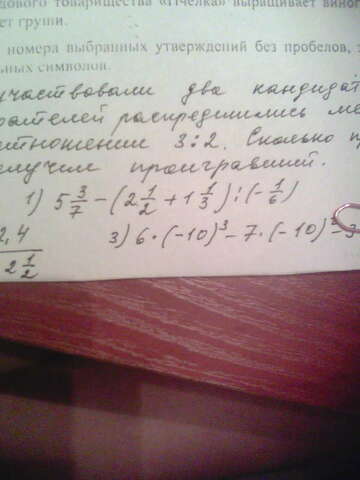 дового товарищества «Пчёлка» выращивает виног
ет груши.
номера выбранных утверждений без пробелов, з
ьных символов.
участвовали два кандидат
рателей распределились ме
отношении 3:2. Сколько
олучил проигравший.
1) 5 3/7 - (2 1/2 + 1 1/3) : (- 1/6)
2,4
2 1/2
3) 6 · (-10)³ - 7 · (-10)² - 3